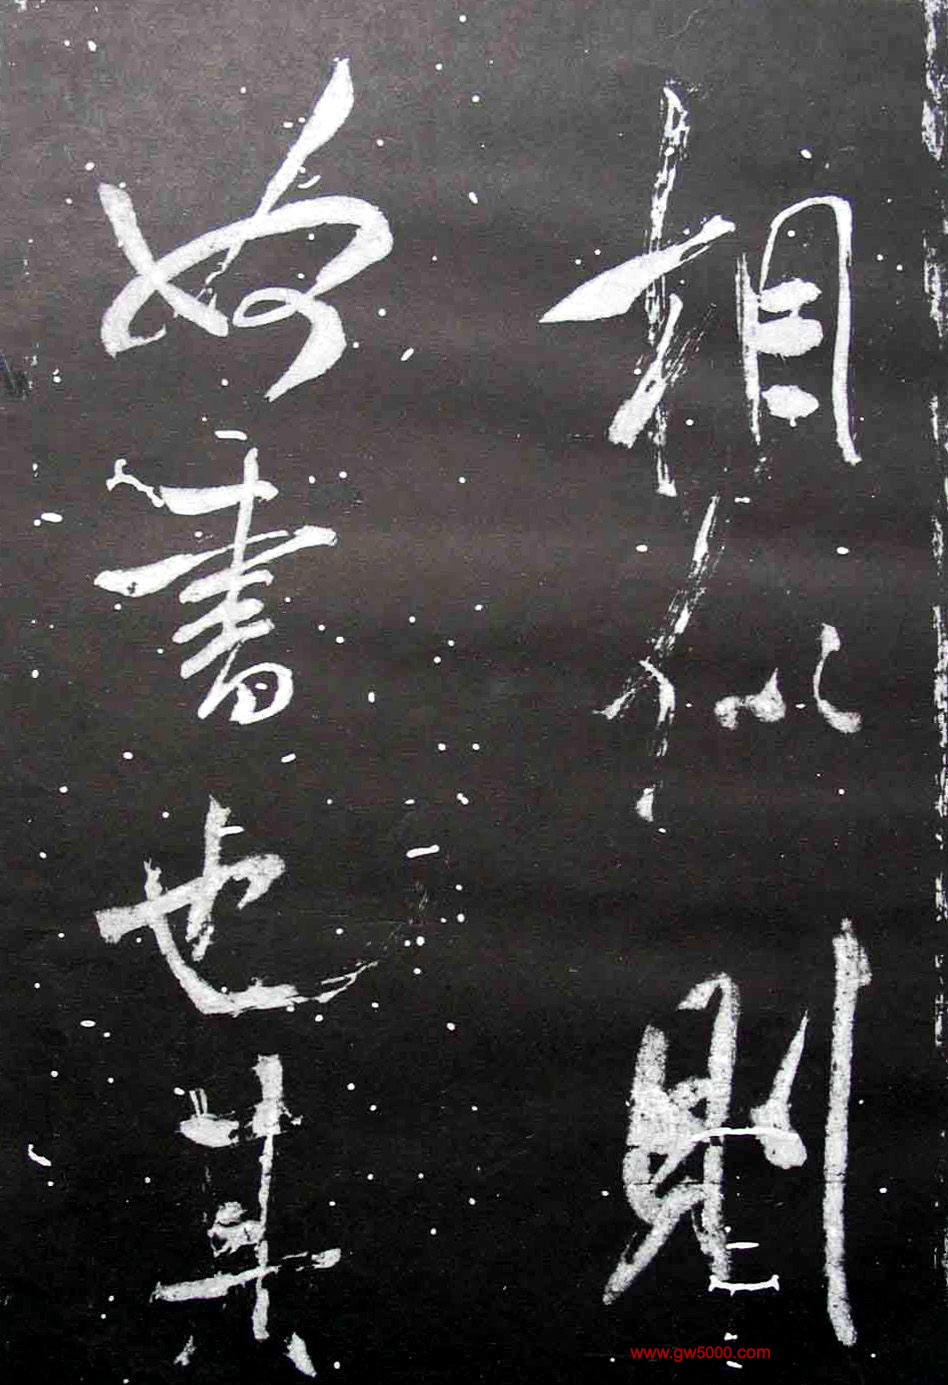 相似則
奴書也其
www.gw5000.com